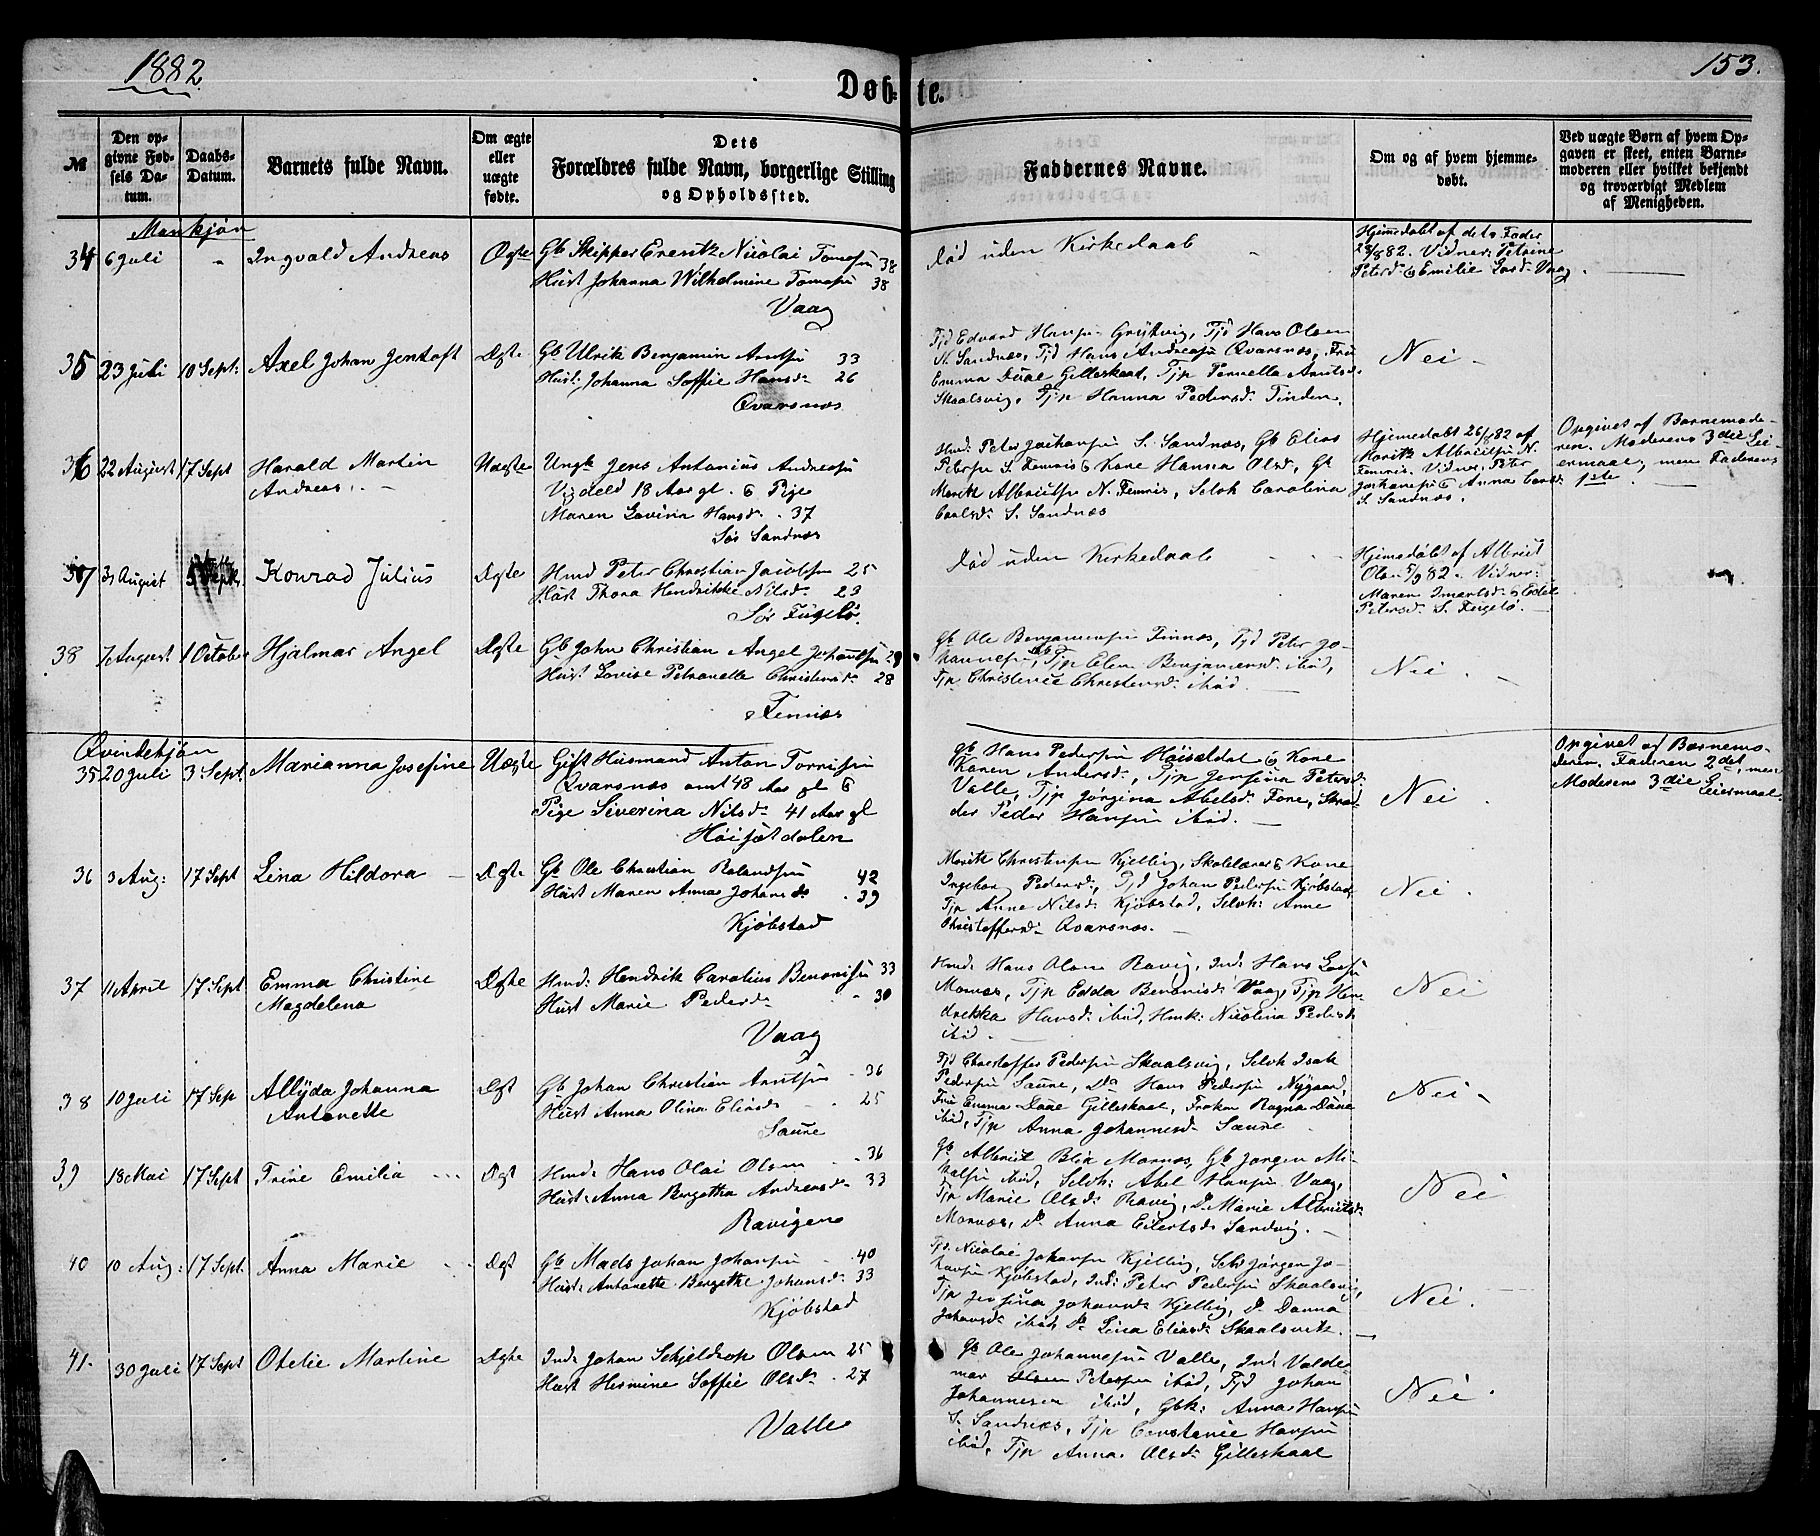 1882.
153.
Døbte.
№
Den opgivne Fødsels Datum.
Daabs-Datum.
Barnets fulde Navn.
Om ægte eller uægte fødte.
Dets Forældres fulde Navn, borgerlige Stilling og Opholdssted.
Faddernes Navne.
Om og af hvem hjemmedøbt.
Ved uægte Børn af hvem Opgaven er skeet, enten Barnemoderen eller hvilket bekjendt og troværdigt Medlem af Menigheden.
Mankjøn
34 6 Juli " Ingvald Andreas Ægte
Gb Skipper Erentz Nicolai Tomassn 38
Hust Johanna Wilhelmine Tomasn 38
Vaag
Død uden Kirkedaab
Hjemedøbt af dets Fader
Vidner: Petrine
Petersd. & Emilie Vaag.
35 23 Juli 10 Sept: Axel Johan Jentoft Ægte
Gb Ulrik Benjamin Arntsn 33
Hust: Johanna Soffie Hansd: 26
Qvarsnæs
Tjd Edvard Hansn Grytvig, Tjd Hans Olsen
N. Sandnæs, Tjd Hans Andreassn Qvarsnæs, Fru
Emma Gilleskaal, Tjp Pernella Arntsd.
Skaalsvig, Tjp Hanna Pedersd: Tinden.
Nei
36 22 August 17 Sept Harald Martin
Andreas. Uægte
Ungk Jens Antonius Andreasn
18 Aar gl. & Pige
Maren Lovina Hansd: 37
Sør Sandnæs
Hmd: Peter Jochumsn S. Sandnæs, Gb Elias
Petersn S. Femris & Kone Hanna Olsd, Gb
Moritz Albrictsn N. Femris, Selvh Carolina
Carlsd: S. Sandnæs
Hjemedøbt 26/8 82 af
Moritz Albrictsn N.
Femris. Vidner, Peter
& Anna Carlsd:
S. Sandnæs.
Opgives af Barnemoderen. Moderens 3die Leiermaal, men Faderens
1ste.
37 31 August Konrad Julius Ægte
Hmd Peter Christian Jacobsn 25
Hust Thora Hendrikke Nilsd: 23
Sør Fugelø.
Død uden Kirkedaab
Hjemedøbt af Albrict
Olsn 5/9 82. Vidner:
Maren & Edel
Petersd: S. Fugelø.
38 7 August 1 October Hjalmar Angel Ægte
Gb John Christian Angel Johansn 29
Hust Lovise Petronelle Christensd: 28
Femris
Gb Ole Benjaminsn Finnæs, Tjd Peter Johannesn, Tjp Elen Benjaminsd: ibid,
Tjp Christence Christensd: ibid.
Nei.
Qvindekjøn
35 20 Juli 3 Sept. Marianna Josefine Uægte
Gift Husmand Anton Torrissn
Qvarsnæs omt 48 Aar gl &
Pige Siverina Nilsd: 41 Aar gl
Høisætdalen
Gb Hans Pedersn Høisetdal & Kone
Karen Andersd:, Tjp Jensina Petersd:
Valle, Tjp Jørgina Abelsd: Fore, Skræder Peder Hansn ibid.
Nei.
Opgivet af Barnemoderen. Faderen 2det, men
Moderens 3die Leiermaal.
36 3 Aug: 17 Sept Lina Hildora Ægte
Gb Ole Christian Rolandsn 42
Hust Maren Anna Johansd: 39
Kjøbstad
Moritz Christensn Kjelling, Skolelærer & Kone
Ingeborg Pedersd:, Tjd Johan Pedersn Kjøbstad,
Tjp Anne Nilsd: Kjøbstad, Selvh: Anne
Christoffersd: Qvarsnæs.
Nei.
37 11 April 17 Sept Emma Christine
Magdelena Ægte
Hmd: Hendrik Carolius Benonisn 33
Hust Marie Pedersd: 30
Vaag
Hmd: Hans Olsn Ravig, Ind: Hans Larsn
Mornæs, Tjp Edda Benonisd: Vaag, Tjp Hendrekka Hansd: ibid, Hmk: Nicolina Pedersd:
ibid.
Nei
38 10 Juli 17 Sep Allyda Johanna
Antonette Ægt
Gb Johan Christian Arntsn 36
Hust Anna Olina Eliasd: 25
Saure
Tjd Christoffer Pedersn Skaalsvig, Selvh Isak
Pedersn Saure, Do Hans Pedersn Nygaard,
Fru Emma Daae Gilleskaal, Frøken Ragna Daae
ibid, Tjp Anna Johannesd: Saure
Nei.
39 18 Mai 17 Sept Trine Emilia Ægt
Hmd: Hans Olai Olsen 36
Hust: Anna Bergetha Andreasd: 33
Ravigen
Gb Albrict Blix Mornæs, Gb Jørgen Mikalsn ibid, Selvh: Abel Hansn Vaag,
Tjp Marie Olsd: Ravig, D. Marie Albrictsd:
Mornæs, Do Anna Eilertsd: Sandvig.
Nei
40 10 Aug: 17 Sept. Anna Marie Ægt
Gb Mads Johan Johansn 40
Hust: Antonette Bergethe Johansd: 33
Kjøbstad
Tjd. Nicolai Johansn Kjelling, Selv Jørgen Johansn Kjøbstad, Ind: Peter Pedersn Skaalsvig,
Tjp Jensina Johansd: Kjelling, Do Danna
Johansd: ibid, Do Lina Eliasd: Skaalsvik.
Nei.
41. 30 Juli 17 Sept Otelie Martine Ægte
Ind: Johan Schjeldrop Olsen 25
Hust Hermine Soffie Olsd: 27
Valle
Gb Ole Johannesn Valle, Ind Valdemar Petersn ibid, Tjd Johan
Johannesen ibid, Gbk: Anna Hansn
S. Sandnæs, Tjp Constance Hansn
ibid, Tjp Anna Olsd: Gilleskaal
Nei.